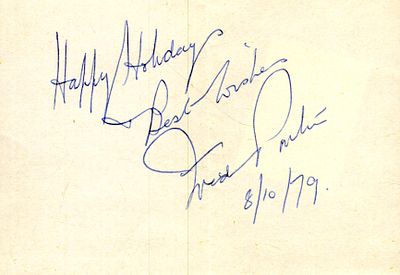 Happy Holidays
Best Wishes
Fred
8/10/79.